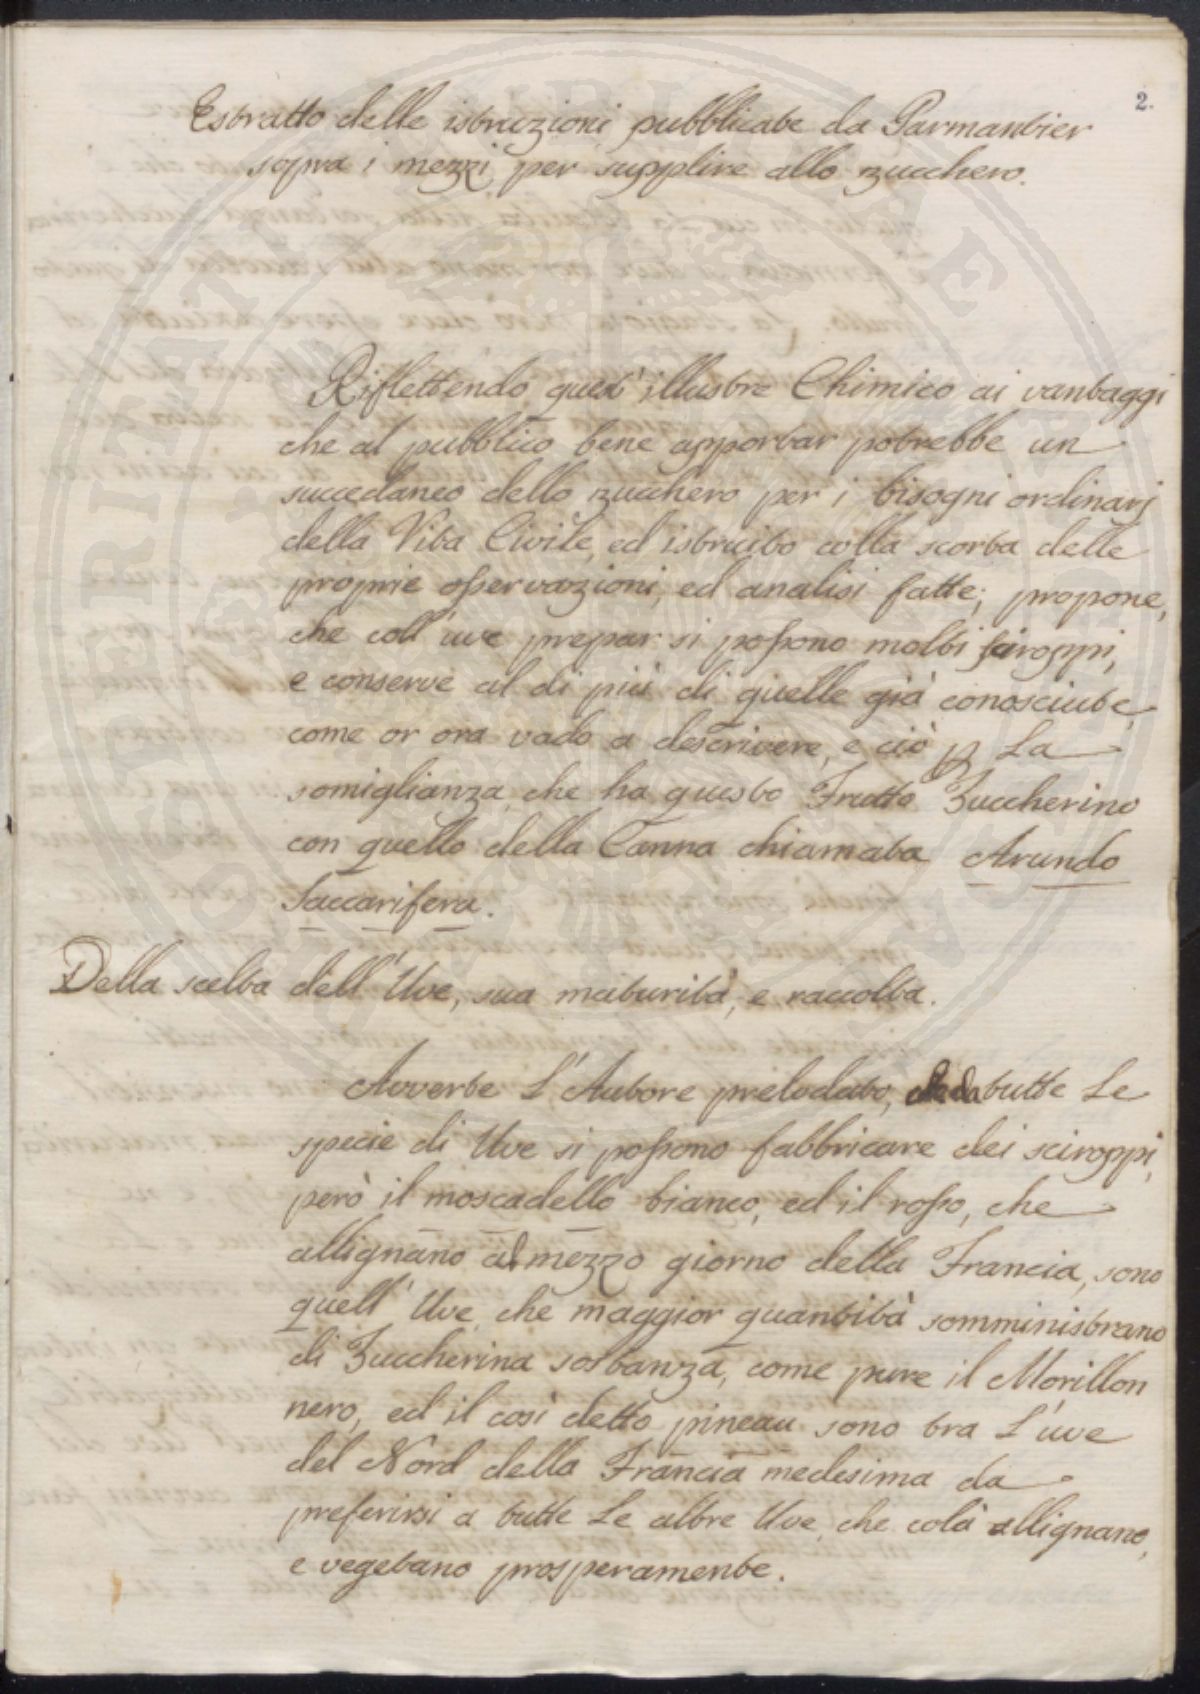 2.
Estratto delle istruzioni pubblicate da Parmantier
sopra i mezzi per supplire allo zucchero.
Riflettendo quest' illustre Chimico ai vantaggi
che al pubblico bene apportar potrebbe un
succedaneo dello zucchero per i bisogni ordinarj
della Vita Civile, ed istruito colla scorta delle
proprie osservazioni, ed analisi fatte; propone,
che coll' uve prepar si possono molti sciroppi,
e conserve al di più di quelle già conosciute,
come or ora vado a descrivere, e ciò p La
somiglianza, che ha questo Frutto Zuccherino
con quello della Canna chiamata Arundo
Saccarifera.
Della scelta dell' Uve, sua maturità, e raccolta.
Avverte L' Autore prelodato, che da tutte Le
specie di Uve si possono fabbricare dei sciroppi,
però il moscadello bianco, ed il rosso, che
allignano al mezzo giorno della Francia, sono
quell' Uve, che maggior quantità somministrano
di Zuccherina sostanza, come pure il Morillon
nero, ed il così detto pineau sono tra L' uve
del Nord della Francia medesima da
preferirsi a tutte Le altre Uve, che colà allignano,
e vegetano prosperamente.
PUBLICAE
VERITATI